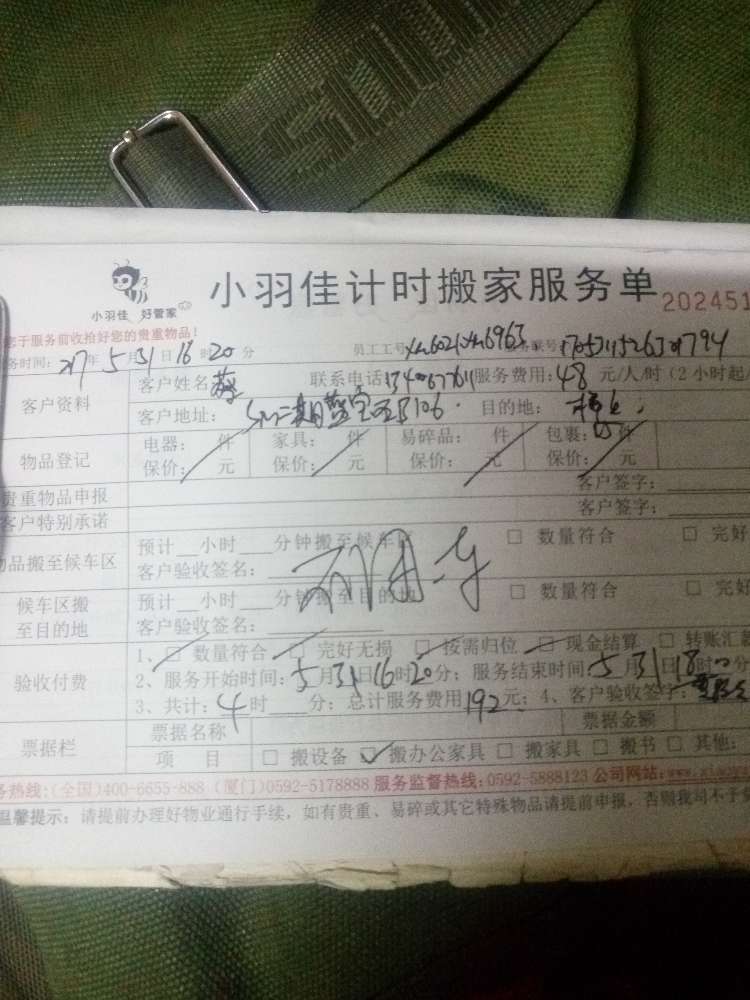 小羽佳 好管家
小羽佳计时搬家服务单 202451
您于服务前收拾好您的贵重物品!
务时间: 217年5月31日16时20分 员工工号 xm6021xm6963
客户资料 客户姓名: 蔡 联系电话 服务费用: 48 元/人/时 (2小时起
客户地址: 106 目的地:
物品登记 电器: 件 家具: 件 易碎品: 件 包裹: 件
保价: 元 保价: 元 保价: 元 保价: 元
贵重物品申报 客户签字:
客户特别承诺 客户签字:
物品搬至候车区 预计__小时___分钟搬至候车区 □ 数量符合 □ 完好
客户验收签名:
候车区搬至目的地 预计__小时___分钟搬至目的地 □ 数量符合 □ 完好
客户验收签名:
验收付费 1、□ 数量符合 □ 完好无损 □ 按需归位 □ 现金结算 □ 转账汇款
2、服务开始时间: 5月31日16时20分; 服务结束时间: 5月31日18时
3、共计: 4时___分; 总计服务费用192元; 4、客户验收签字:
票据栏 票据名称 票据金额
项 目 □ 搬设备 ☑ 搬办公家具 □ 搬家具 □ 搬书 □ 其他:
务热线:(全国)400-6655-888 (厦门)0592-5178888 服务监督热线:0592-5888123 公司网站:
温馨提示: 请提前办理好物业通行手续, 如有贵重、易碎或其它特殊物品请提前申报, 否则我司不予